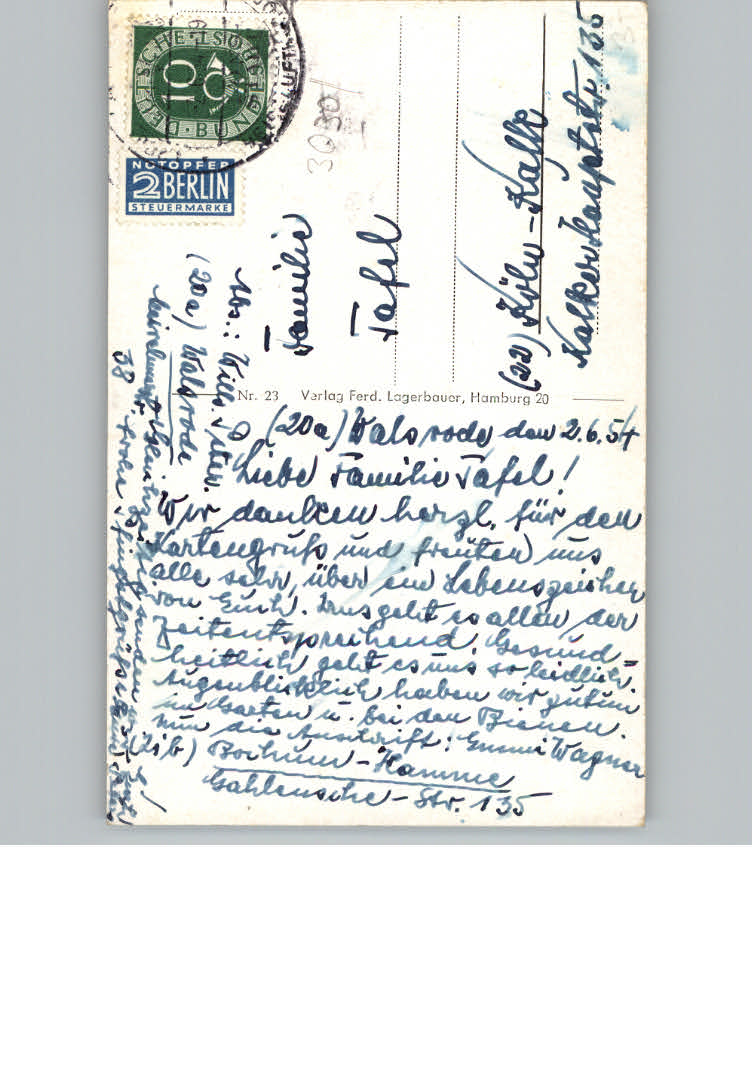 DEUTSCHE BUNDESPOST
10
NOTOPFER
2 BERLIN
STEUERMARKE
3030
Familie
Tafel
(22) Köln-Kalk
Kalker Hauptstr. 135
Abs.: Willi
(20a) Walsrode
38
Nr. 23 Verlag Ferd. Lagerbauer, Hamburg 20
(20a) Walsrode den 2.6.54
Liebe Familie Tafel!
Wir danken herzl. für den
Kartengruß und freuten uns
alle sehr, über ein Lebenszeichen
von Euch. Uns geht es allen der
Zeitentsprechend. Gesund-
heitlich geht es uns so leidlich.
Augenblicklich haben wir zutun
im Garten u. bei den Bienen.
Nun die Anschrift: Emmi Wagner
(21b) Bochum-Hamme
Gahlensche-Str. 135